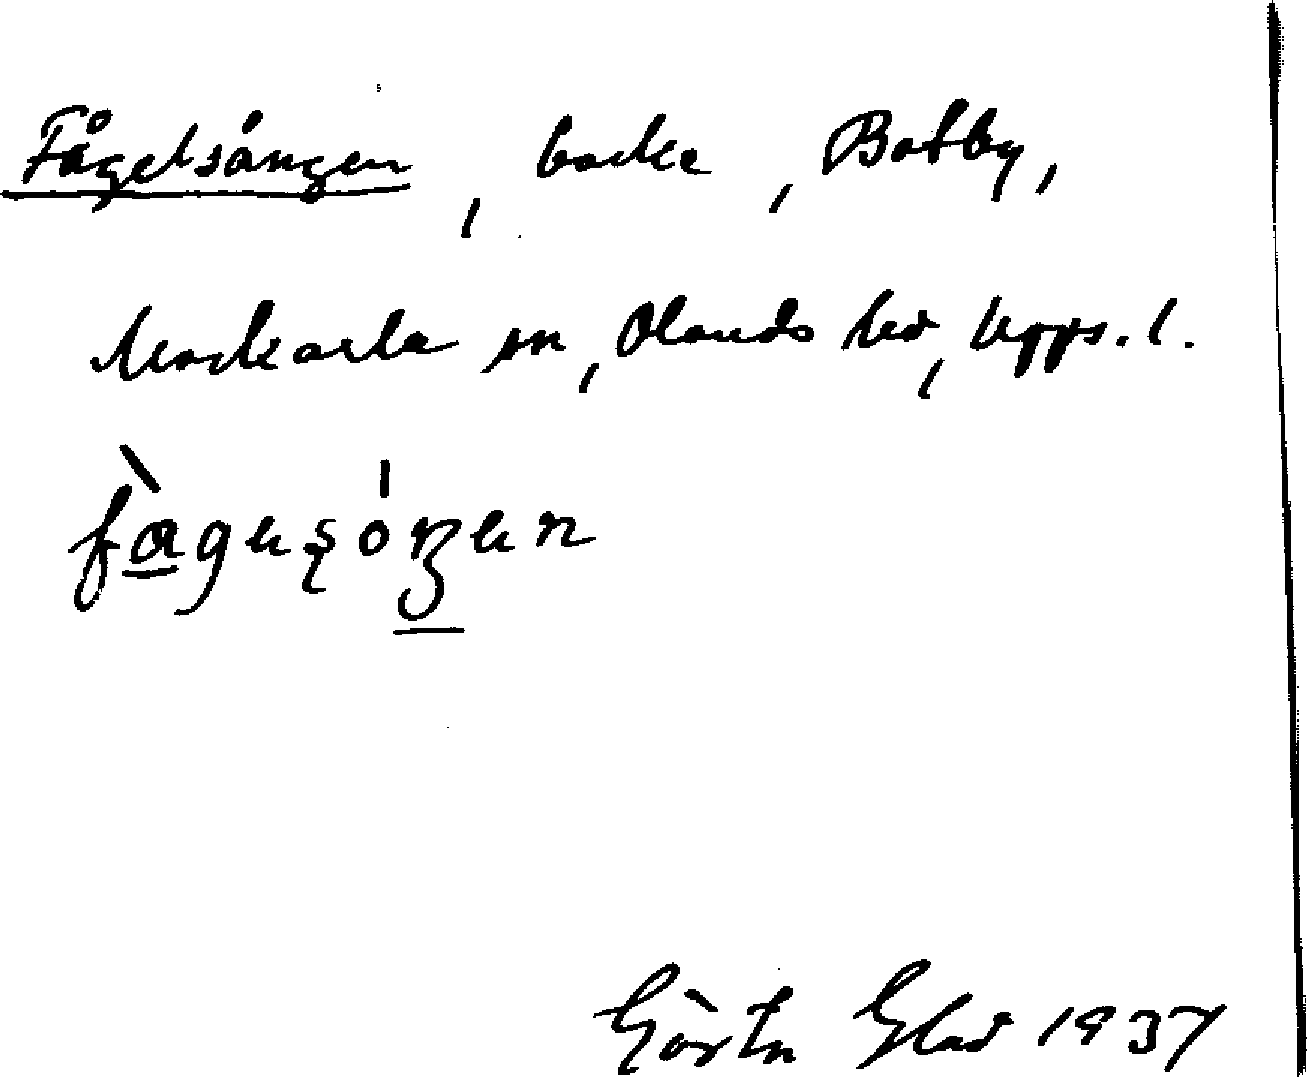 Fågelsången, backe, Botby,
Markarla sn, Olands hd, Upps. l.
fagesoŋen
Gösta Glad 1937